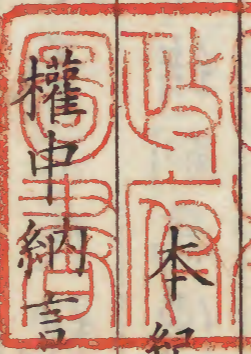 本紀
權中納言
政府
圖書